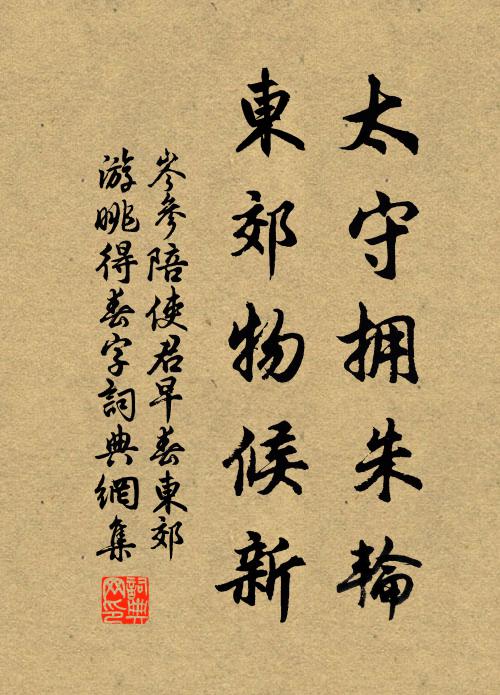 太守拥朱輪
東郊物候新
岑參陪使君早春東郊
游眺得春字詞典網集
詞典网印